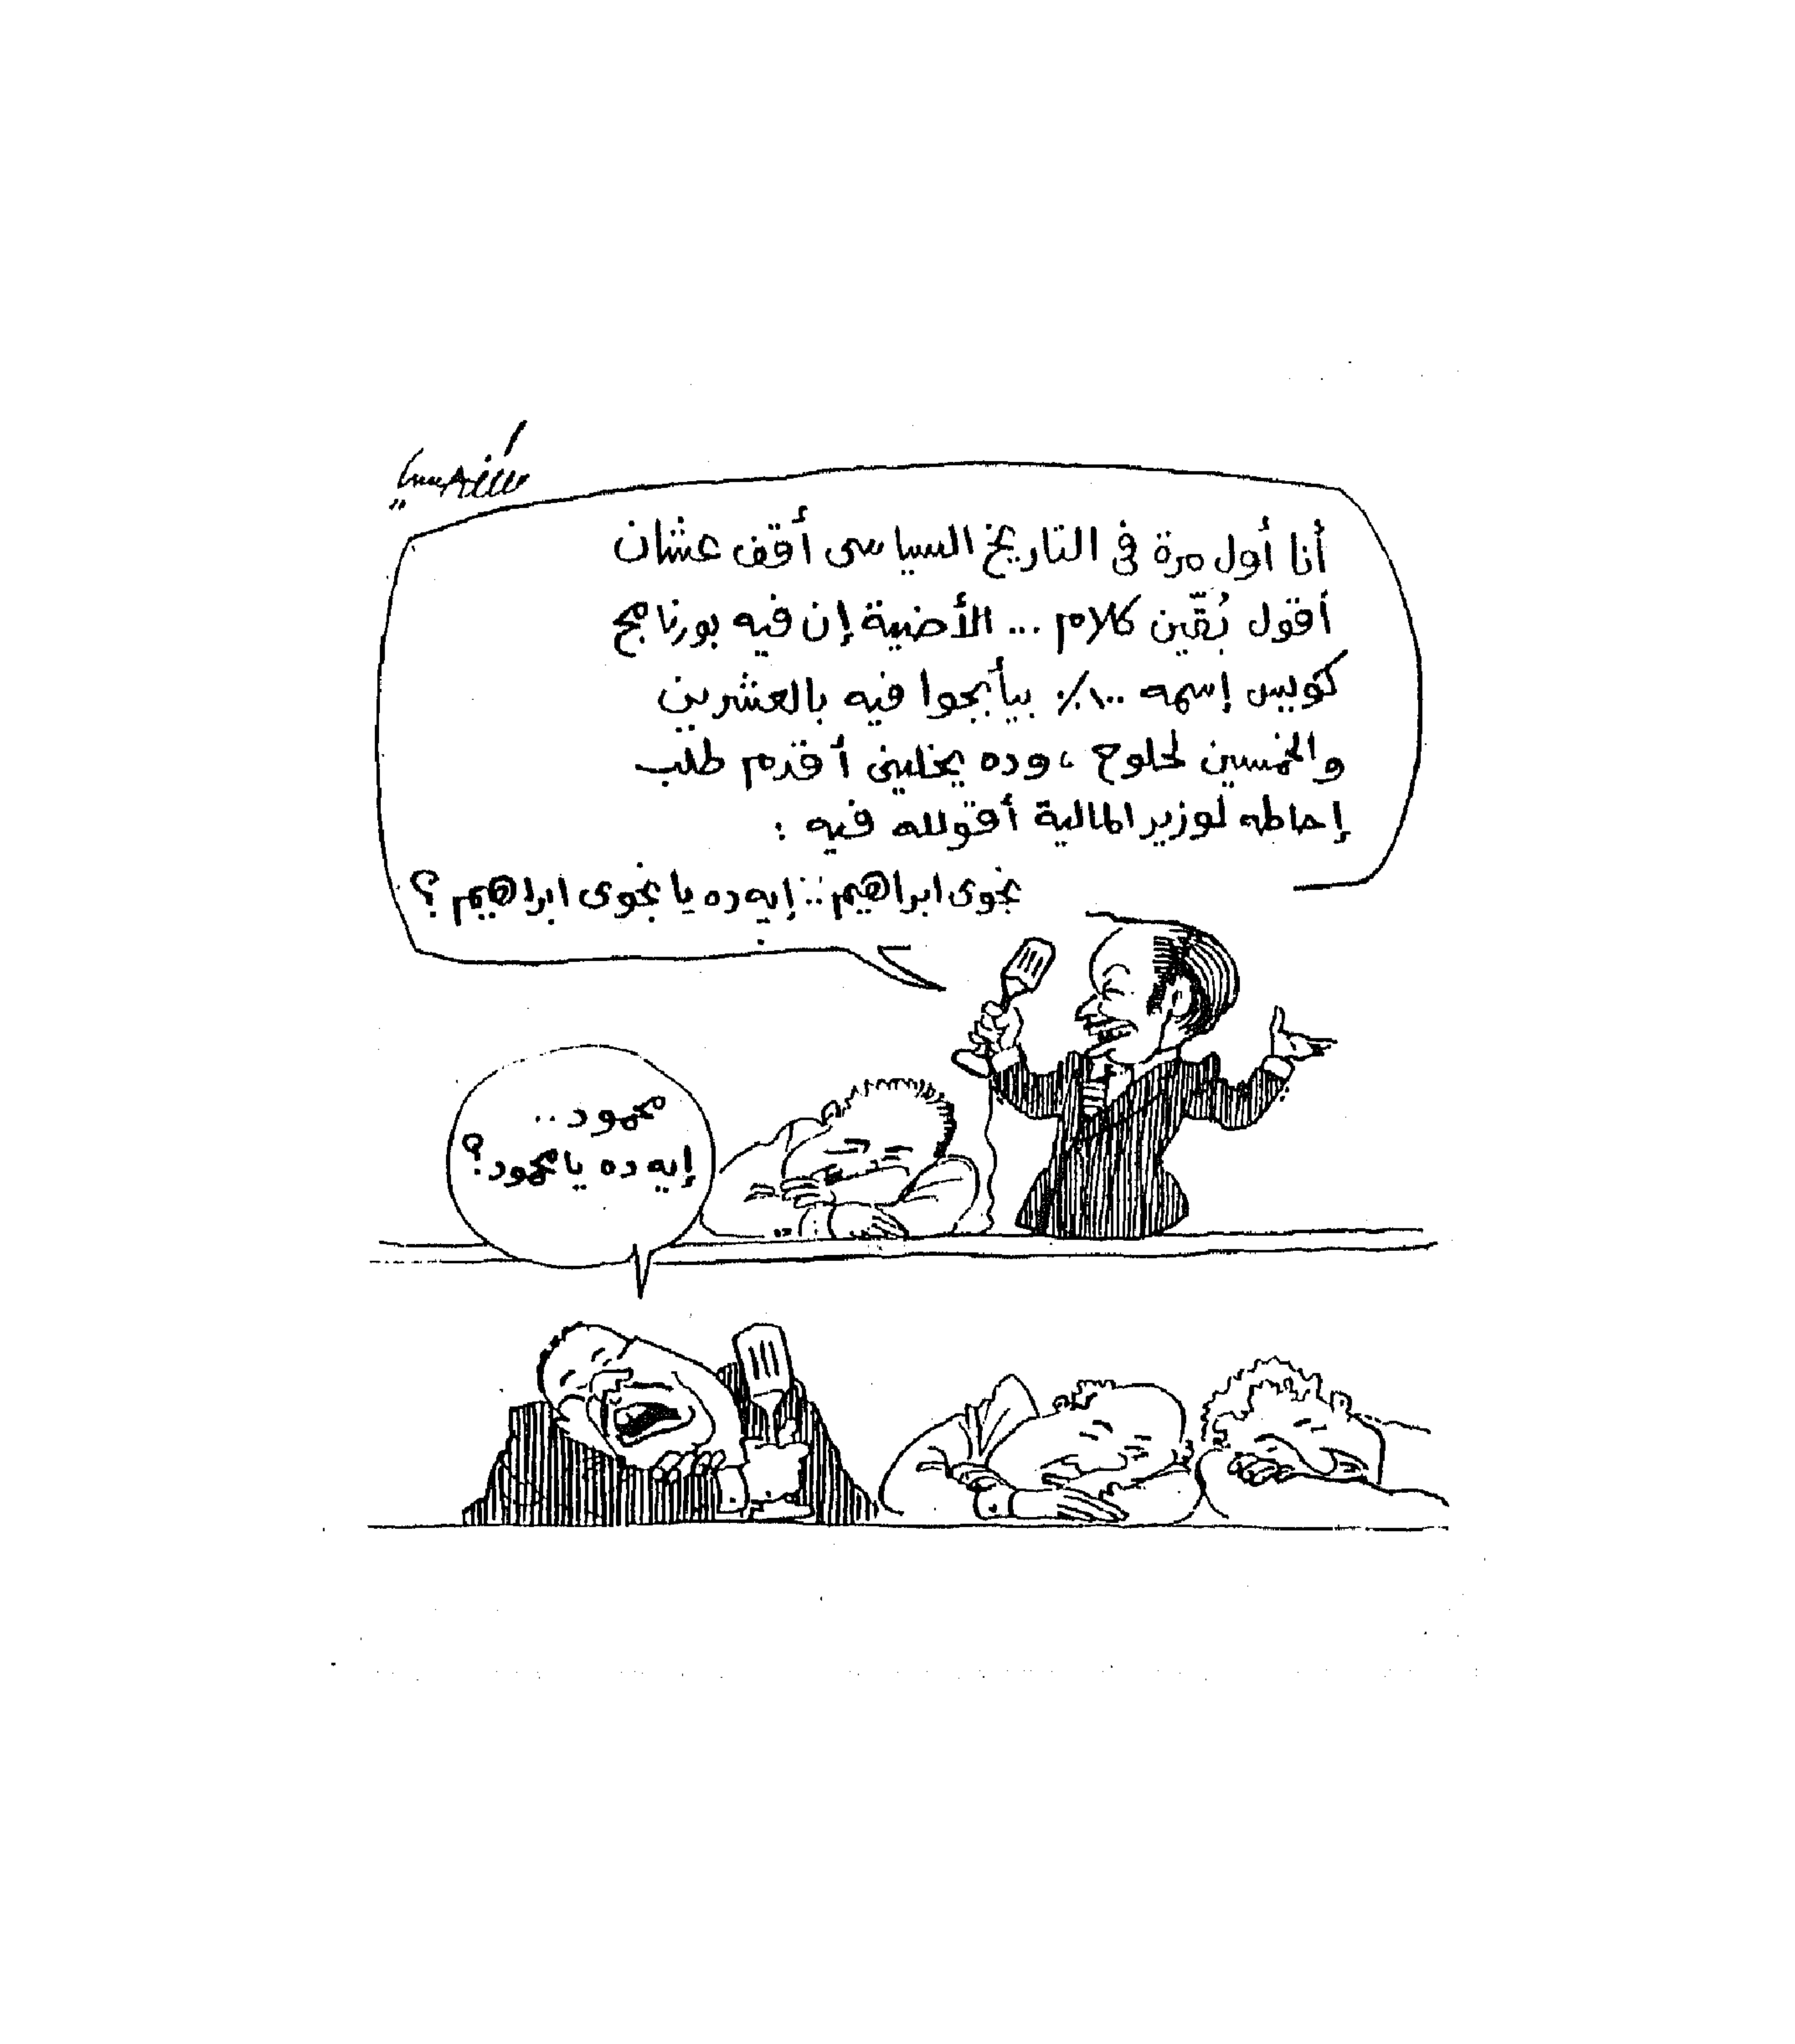 أنا أول مرة في التاريخ السياسى أقف عشان
أقول بُقّين كلام ... الأضية إن فيه بورنامج
كويس إسمه ١٠٠٪ بيأبجوا فيه بالعشرين
والخمسين لحلوح، وده يخلينى أقدم طلب
إحاطه لوزير المالية أقولله فيه :
نجوى ابراهيم .. إيه ده يا نجوى ابراهيم ؟
محمود ..
إيه ده يا محمود ؟